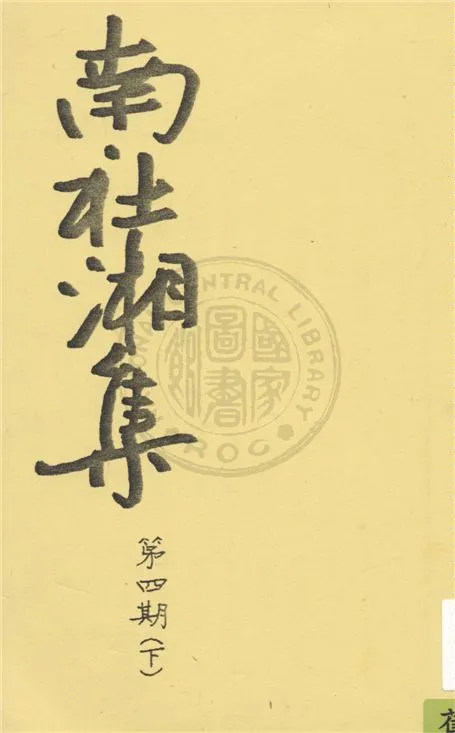 南社湘集
第四期(下)
NATIONAL CENTRAL LIBRARY
R.O.C.
國家圖書館